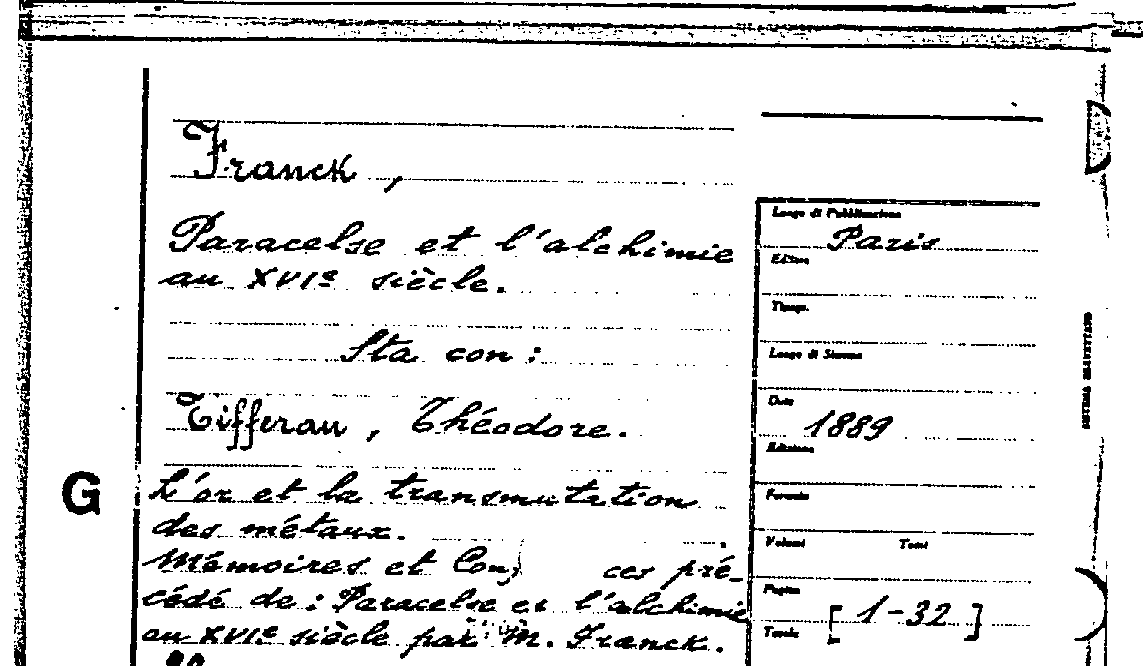 Franck,
Paracelse et l'alchimie
au XVIe siècle.
Sta con:
Tifferau, Théodore.
G
L'or et la transmutation
des métaux.
Mémoires et ces pré-
cédé de: Paracelse et l'alchimie
au XVIe siècle par M. Franck.
Luogo di Pubblicazione
Paris
Editore
Tipogr.
Luogo di Stampa
Data
1889
Edizione
Formato
Volumi Tomi
Pagine
[1-32]
Tavole